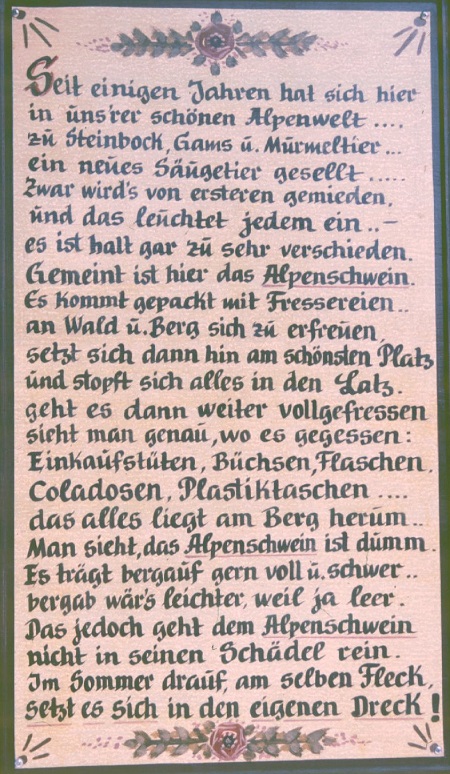 Seit einigen Jahren hat sich hier
in uns'rer schönen Alpenwelt ....
zu Steinbock, Gams u. Murmeltier ...
ein neues Säugetier gesellt .....
Zwar wird's von ersteren gemieden,
und das leuchtet jedem ein ..–
es ist halt gar zu sehr verschieden.
Gemeint ist hier das Alpenschwein.
Es kommt gepackt mit Fressereien ..
an Wald u. Berg sich zu erfreuen,
setzt sich dann hin am schönsten Platz
und stopft sich alles in den Latz.
geht es dann weiter vollgefressen
sieht man genau, wo es gegessen:
Einkaufstüten, Büchsen, Flaschen,
Coladosen, Plastiktaschen ....
das alles liegt am Berg herum ..
Man sieht, das Alpenschwein ist dumm.
Es trägt bergauf gern voll u. schwer ..
bergab wär's leichter, weil ja leer.
Das jedoch geht dem Alpenschwein
nicht in seinen Schädel rein.
Im Sommer drauf, am selben Fleck,
setzt es sich in den eigenen Dreck!